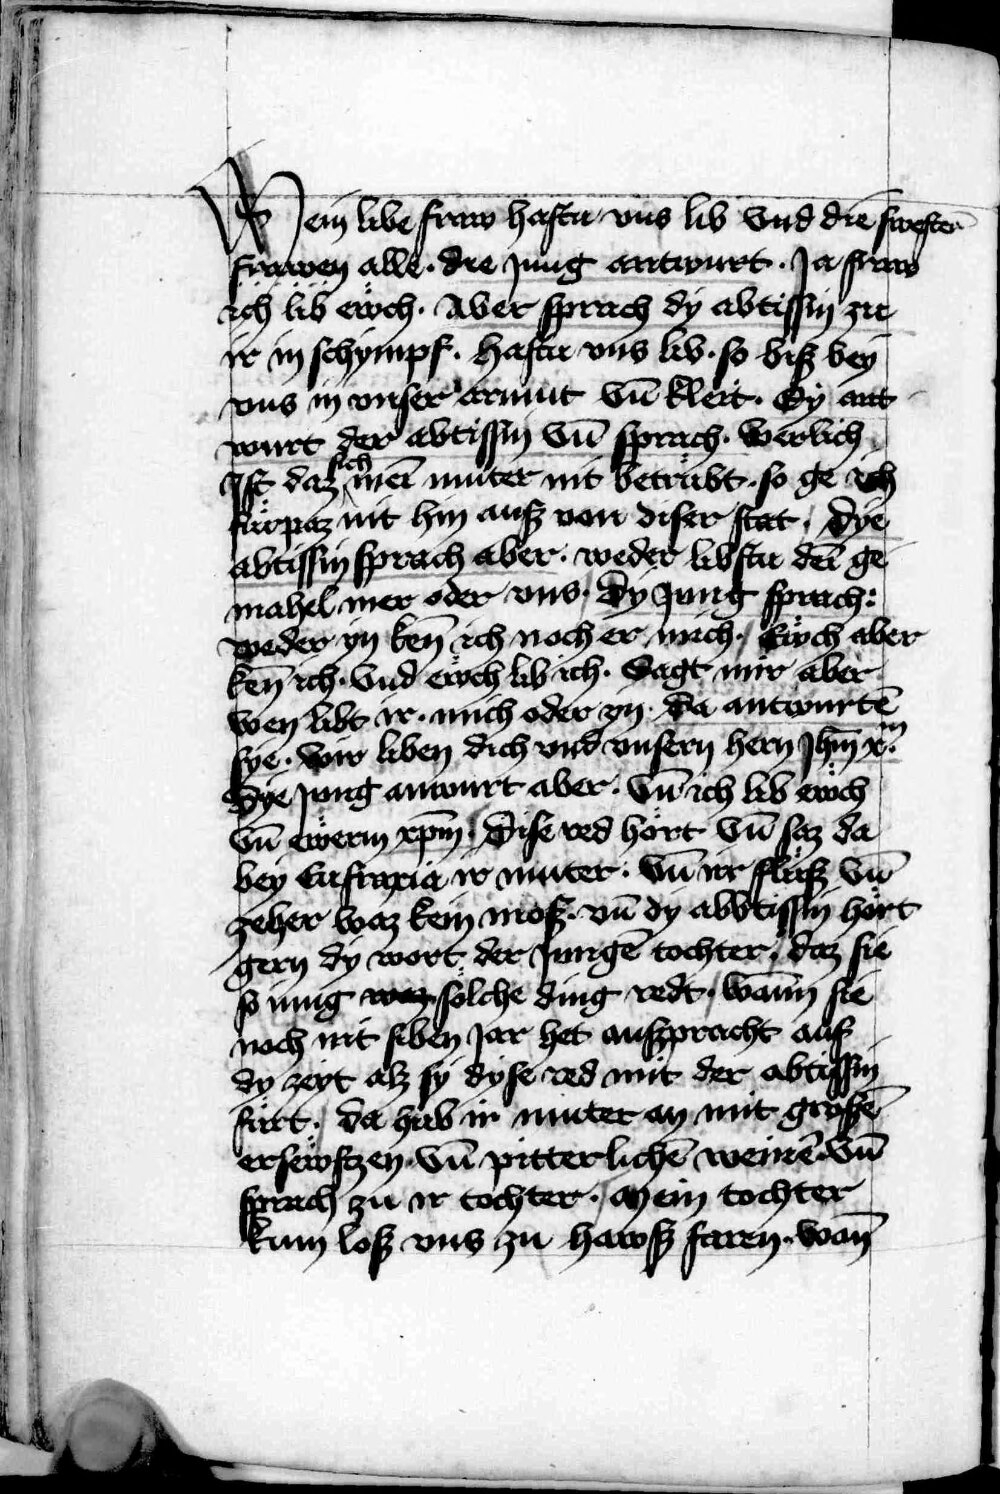 Mein libe fraw hastu vns lib vnd die swester̄
frawen alle · die jung antwurt · Ja fraw
ich lib ewch · Aber sprach dy abtissin zu
ir in schympf · hastu vns lib · so biß bey
vns in vnser armut vn̄ kleit · Dy ant
wurt der abtissin vn̄ sprach · werlich
Ist daz sich mei muter nit betrübt · so ge ich
fürpaz nit hin auß von diser stat · Dye
abtissin sprach aber · weder libstu dei ge
mahel mer oder vns · Dy jung sprach :
weder yn ken̄ ich noch er mich · Ewch aber
ken̄ ich · vnd ewch lib ich · Sagt mir aber
wen libt ir · mich oder yn · Da antwurtē
sye · wir liben dich vnd vnsern hern Jhm̄ xm ·
Dye jung antwurt aber · vn̄ ich lib ewch
vn̄ ewerm xp̄m · Dise red hört vn̄ saz da
bey Eufraxia ir muter · vn̄ ir flüß vn̄
zeher waz kein moß · vn̄ dy abbtissin hört
gern dy wort der jungē tochter · daz sie
so iung waz sölche ding redt · wann̄ sie
noch nit siben Jar het aufzpracht auf
dy zeyt alz sy dyse red mit der abtissin
fürt · Da hub ir muter an mit grossē
ersewfczen · vn̄ pitterlichē weinē · vn̄
sprach zu ir tochter · Mein tochter
kum loß vns zu hawß faren · wan̄